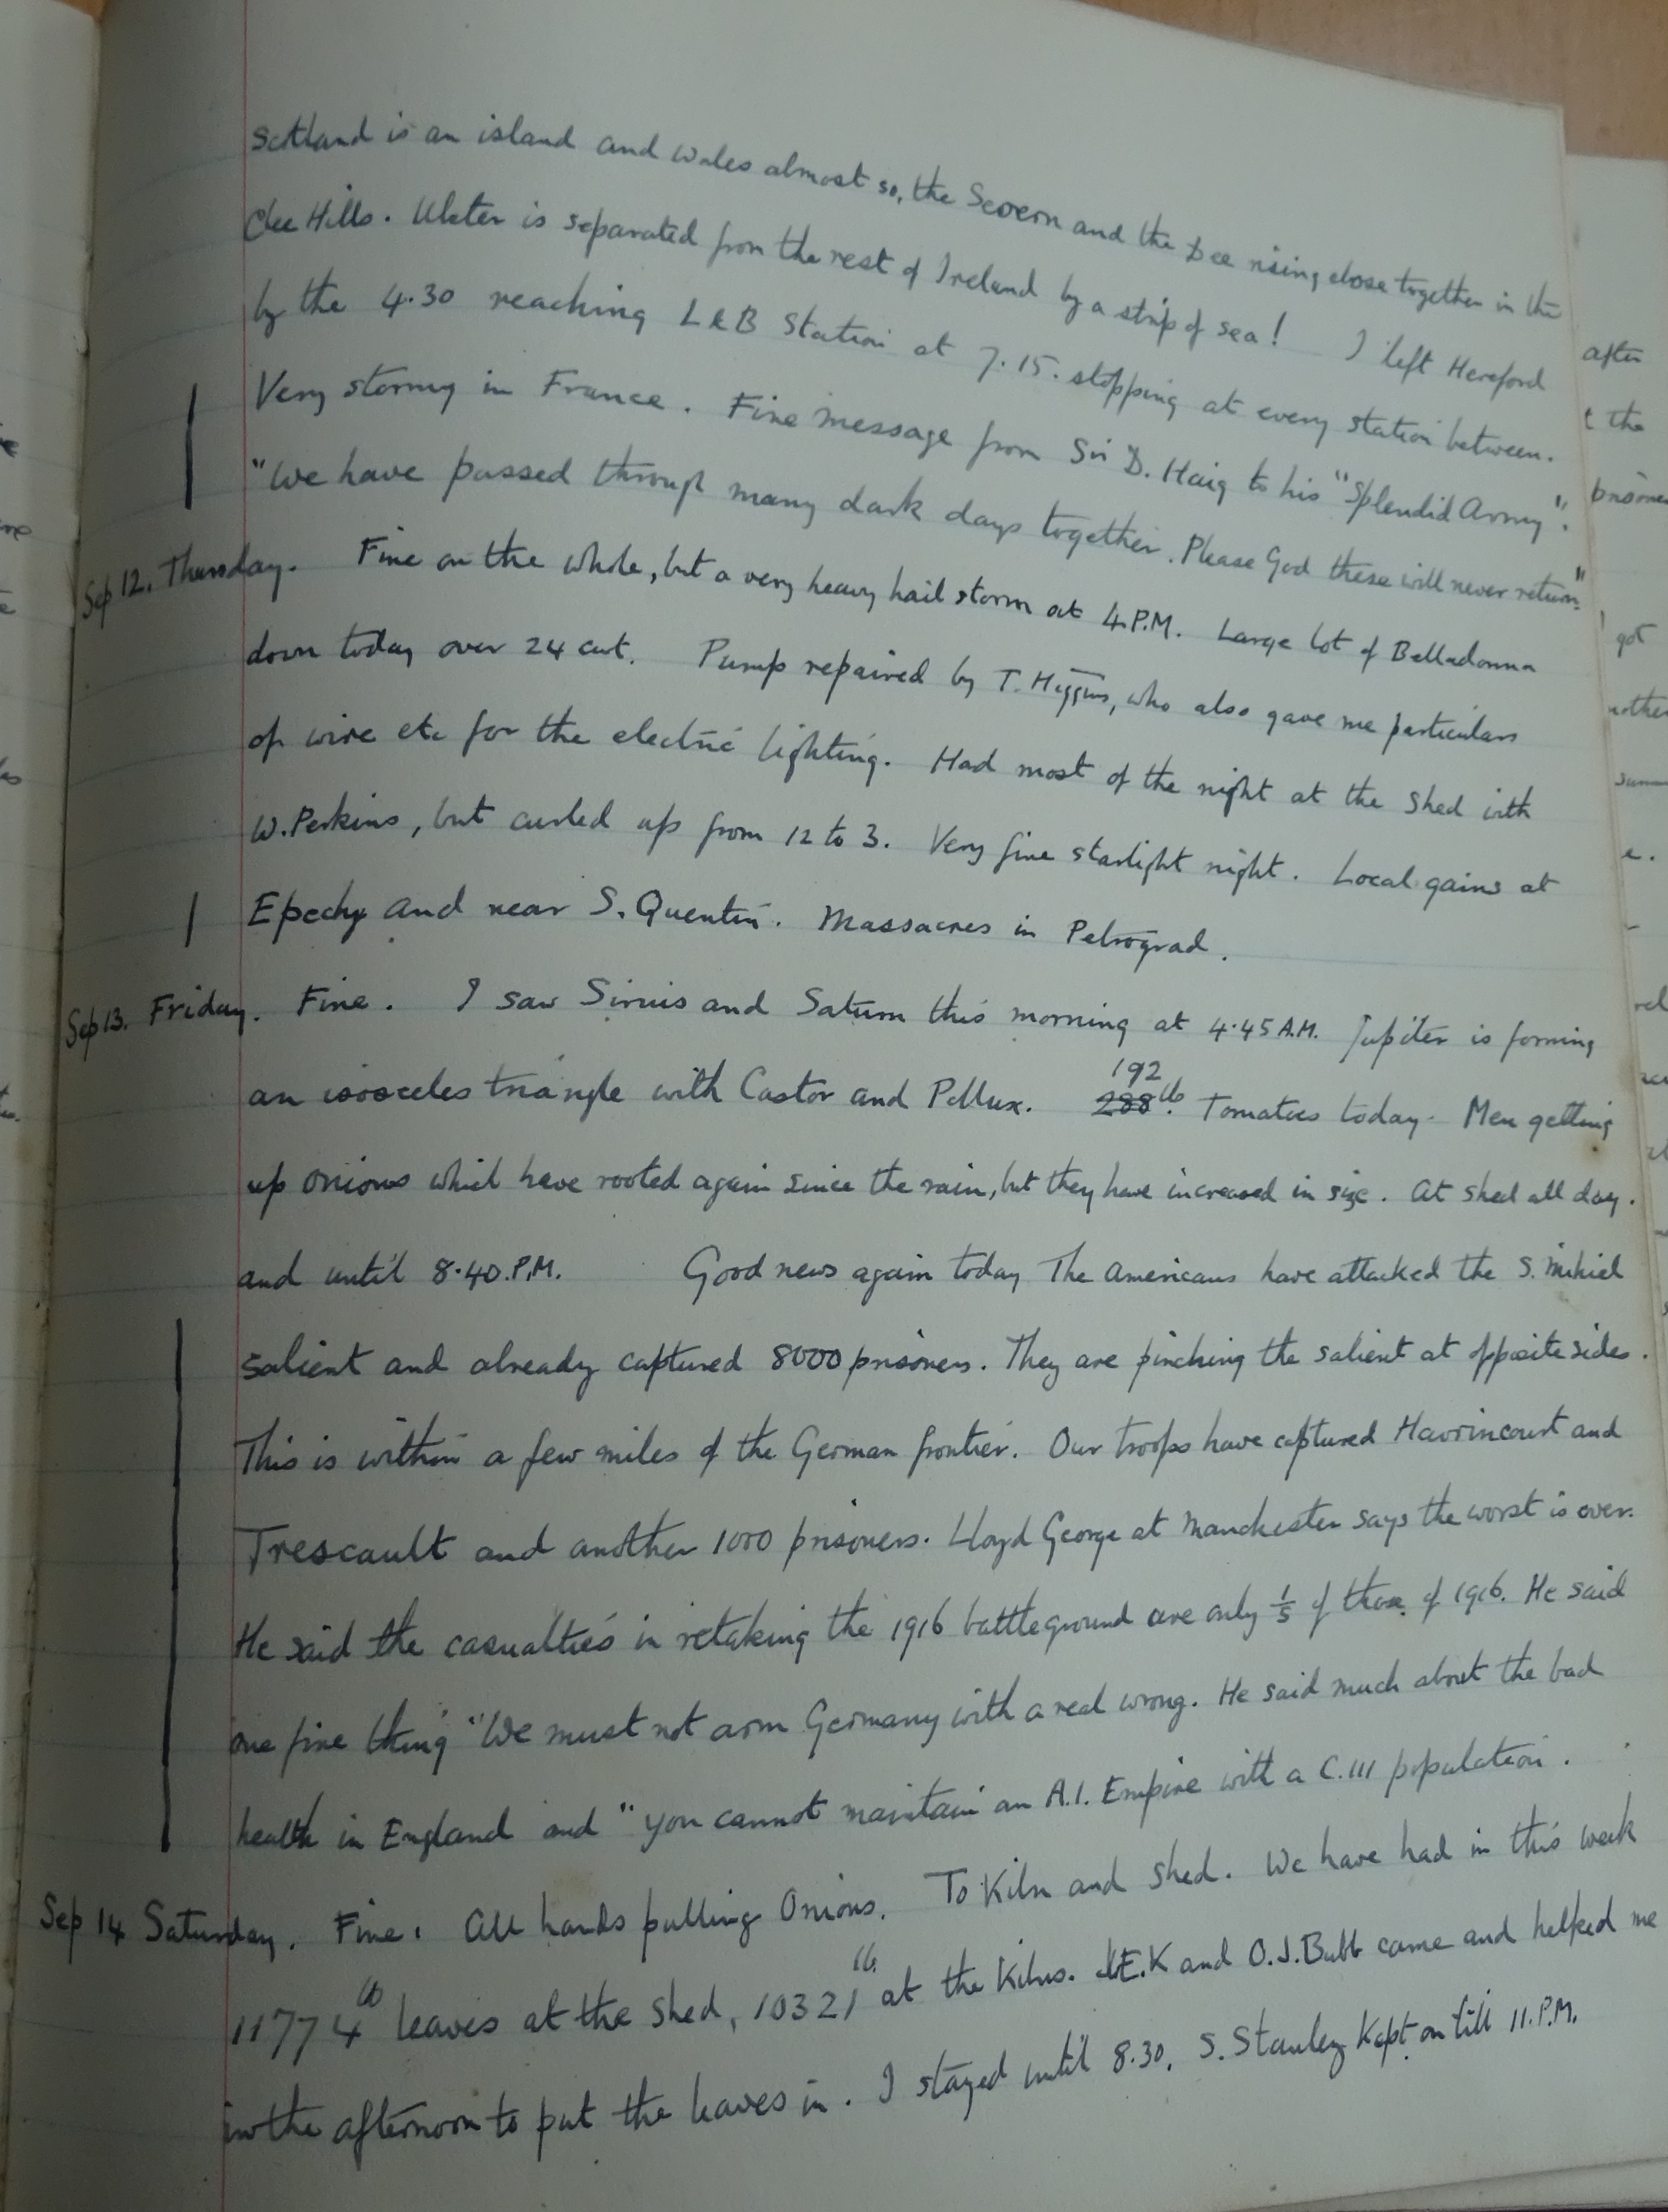 Scotland is an island and Wales almost so, the Severn and the Dee rising close together in the
Clee Hills. Ulster is separated from the rest of Ireland by a strip of sea! I left Hereford
by the 4.30 reaching L & B Station at 7.15. stopping at every station between.
Very stormy in France. Fine message from Sir D. Haig to his "Splendid Army".
"We have passed through many dark days together. Please God these will never return."
Sep 12. Thursday. Fine on the whole, but a very heavy hail storm at 4.P.M. Large lot of Belladonna
down today over 24 cwt. Pump repaired by T. Higgins, who also gave me particulars
of wire etc for the electric lighting. Had most of the night at the shed with
W. Perkins, but curled up from 12 to 3. Very fine starlight night. Local gains at
Epechy and near S. Quentin. Massacres in Petrograd.
Sep 13. Friday. Fine. I saw Sirius and Saturn this morning at 4.45 A.M. Jupiter is forming
an isosceles triangle with Castor and Pollux. 288 192 lb. Tomatoes today. Men getting
up onions which have rooted again since the rain, but they have increased in size. At shed all day.
and until 8.40.P.M. Good news again today The Americans have attacked the S. Mihiel
salient and already captured 8000 prisoners. They are pinching the salient at opposite sides.
This is within a few miles of the German frontier. Our troops have captured Havrincourt and
Trescault and another 1000 prisoners. Lloyd George at Manchester says the worst is over.
He said the casualties in retaking the 1916 battleground are only 1/5 of those of 1916. He said
one fine thing "We must not arm Germany with a real wrong. He said much about the bad
health in England and "you cannot maintain an A.1. Empire with a C.111 population.
Sep 14 Saturday. Fine. All hands pulling Onions. To Kiln and shed. We have had in this week
11774 lb leaves at the shed, 10321 lb. at the Kilns. E.K and O.J.Bubb came and helped me
in the afternoon to put the leaves in. I stayed until 8.30. S. Stanley Kept on till 11.P.M.
after
the
got